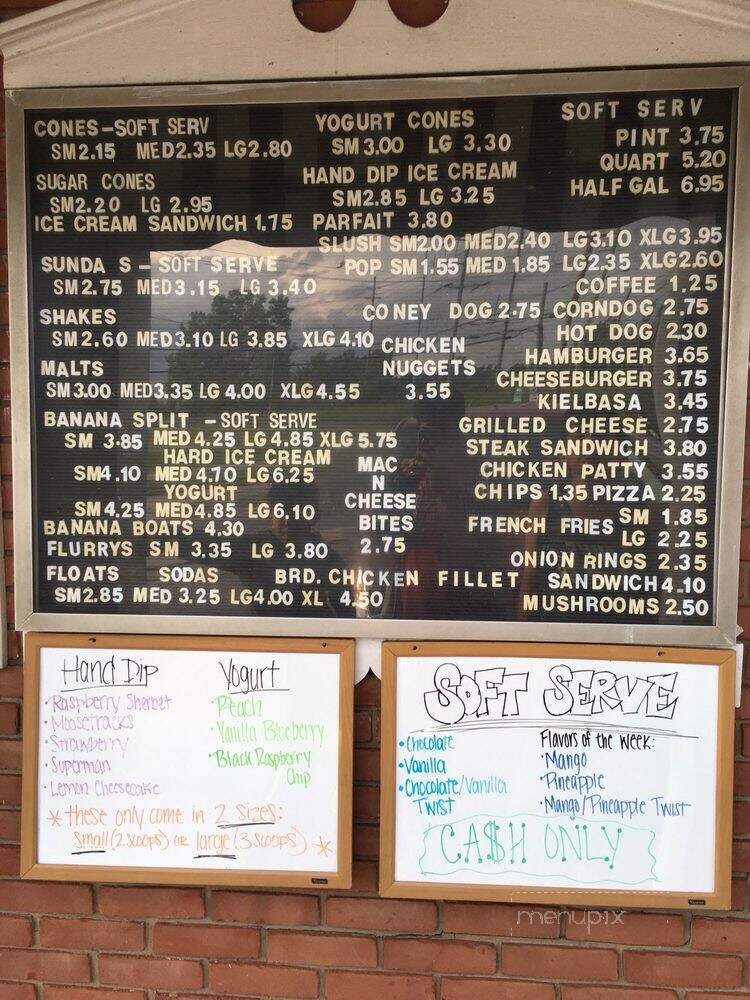 CONES-SOFT SERV
SM 2.15 MED 2.35 LG 2.80
SUGAR CONES
SM 2.20 LG 2.95
ICE CREAM SANDWICH 1.75
YOGURT CONES
SM 3.00 LG 3.30
HAND DIP ICE CREAM
SM 2.85 LG 3.25
PARFAIT 3.80
SOFT SERV
PINT 3.75
QUART 5.20
HALF GAL 6.95
SLUSH SM 2.00 MED 2.40 LG 3.10 XLG 3.95
POP SM 1.55 MED 1.85 LG 2.35 XLG 2.60
COFFEE 1.25
SUNDA S - SOFT SERVE
SM 2.75 MED 3.15 LG 3.40
SHAKES
SM 2.60 MED 3.10 LG 3.85 XLG 4.10
MALTS
SM 3.00 MED 3.35 LG 4.00 XLG 4.55
BANANA SPLIT - SOFT SERVE
SM 3.85 MED 4.25 LG 4.85 XLG 5.75
HARD ICE CREAM
SM 4.10 MED 4.70 LG 6.25
YOGURT
SM 4.25 MED 4.85 LG 6.10
BANANA BOATS 4.30
FLURRYS SM 3.35 LG 3.80
FLOATS SODAS
SM 2.85 MED 3.25 LG 4.00 XL 4.50
CHICKEN
NUGGETS
3.55
MAC
N
CHEESE
BITES
2.75
CONEY DOG 2.75 CORNDOG 2.75
HOT DOG 2.30
HAMBURGER 3.65
CHEESEBURGER 3.75
KIELBASA 3.45
GRILLED CHEESE 2.75
STEAK SANDWICH 3.80
CHICKEN PATTY 3.55
CHIPS 1.35 PIZZA 2.25
FRENCH FRIES SM 1.85
LG 2.25
ONION RINGS 2.35
BRD. CHICKEN FILLET SANDWICH 4.10
MUSHROOMS 2.50
Hand Dip
• Raspberry Sherbet
• Moosetracks
• Strawberry
• Superman
• Lemon Cheesecake
Yogurt
• Peach
• Vanilla Blueberry
• Black Raspberry
Chip
* these only come in 2 sizes:
small (2 scoops) or large (3 scoops) *
SOFT SERVE
• Chocolate
• Vanilla
• Chocolate/Vanilla
Twist
Flavors of the week:
• Mango
• Pineapple
• Mango/Pineapple Twist
CA$H ONLY
menupix